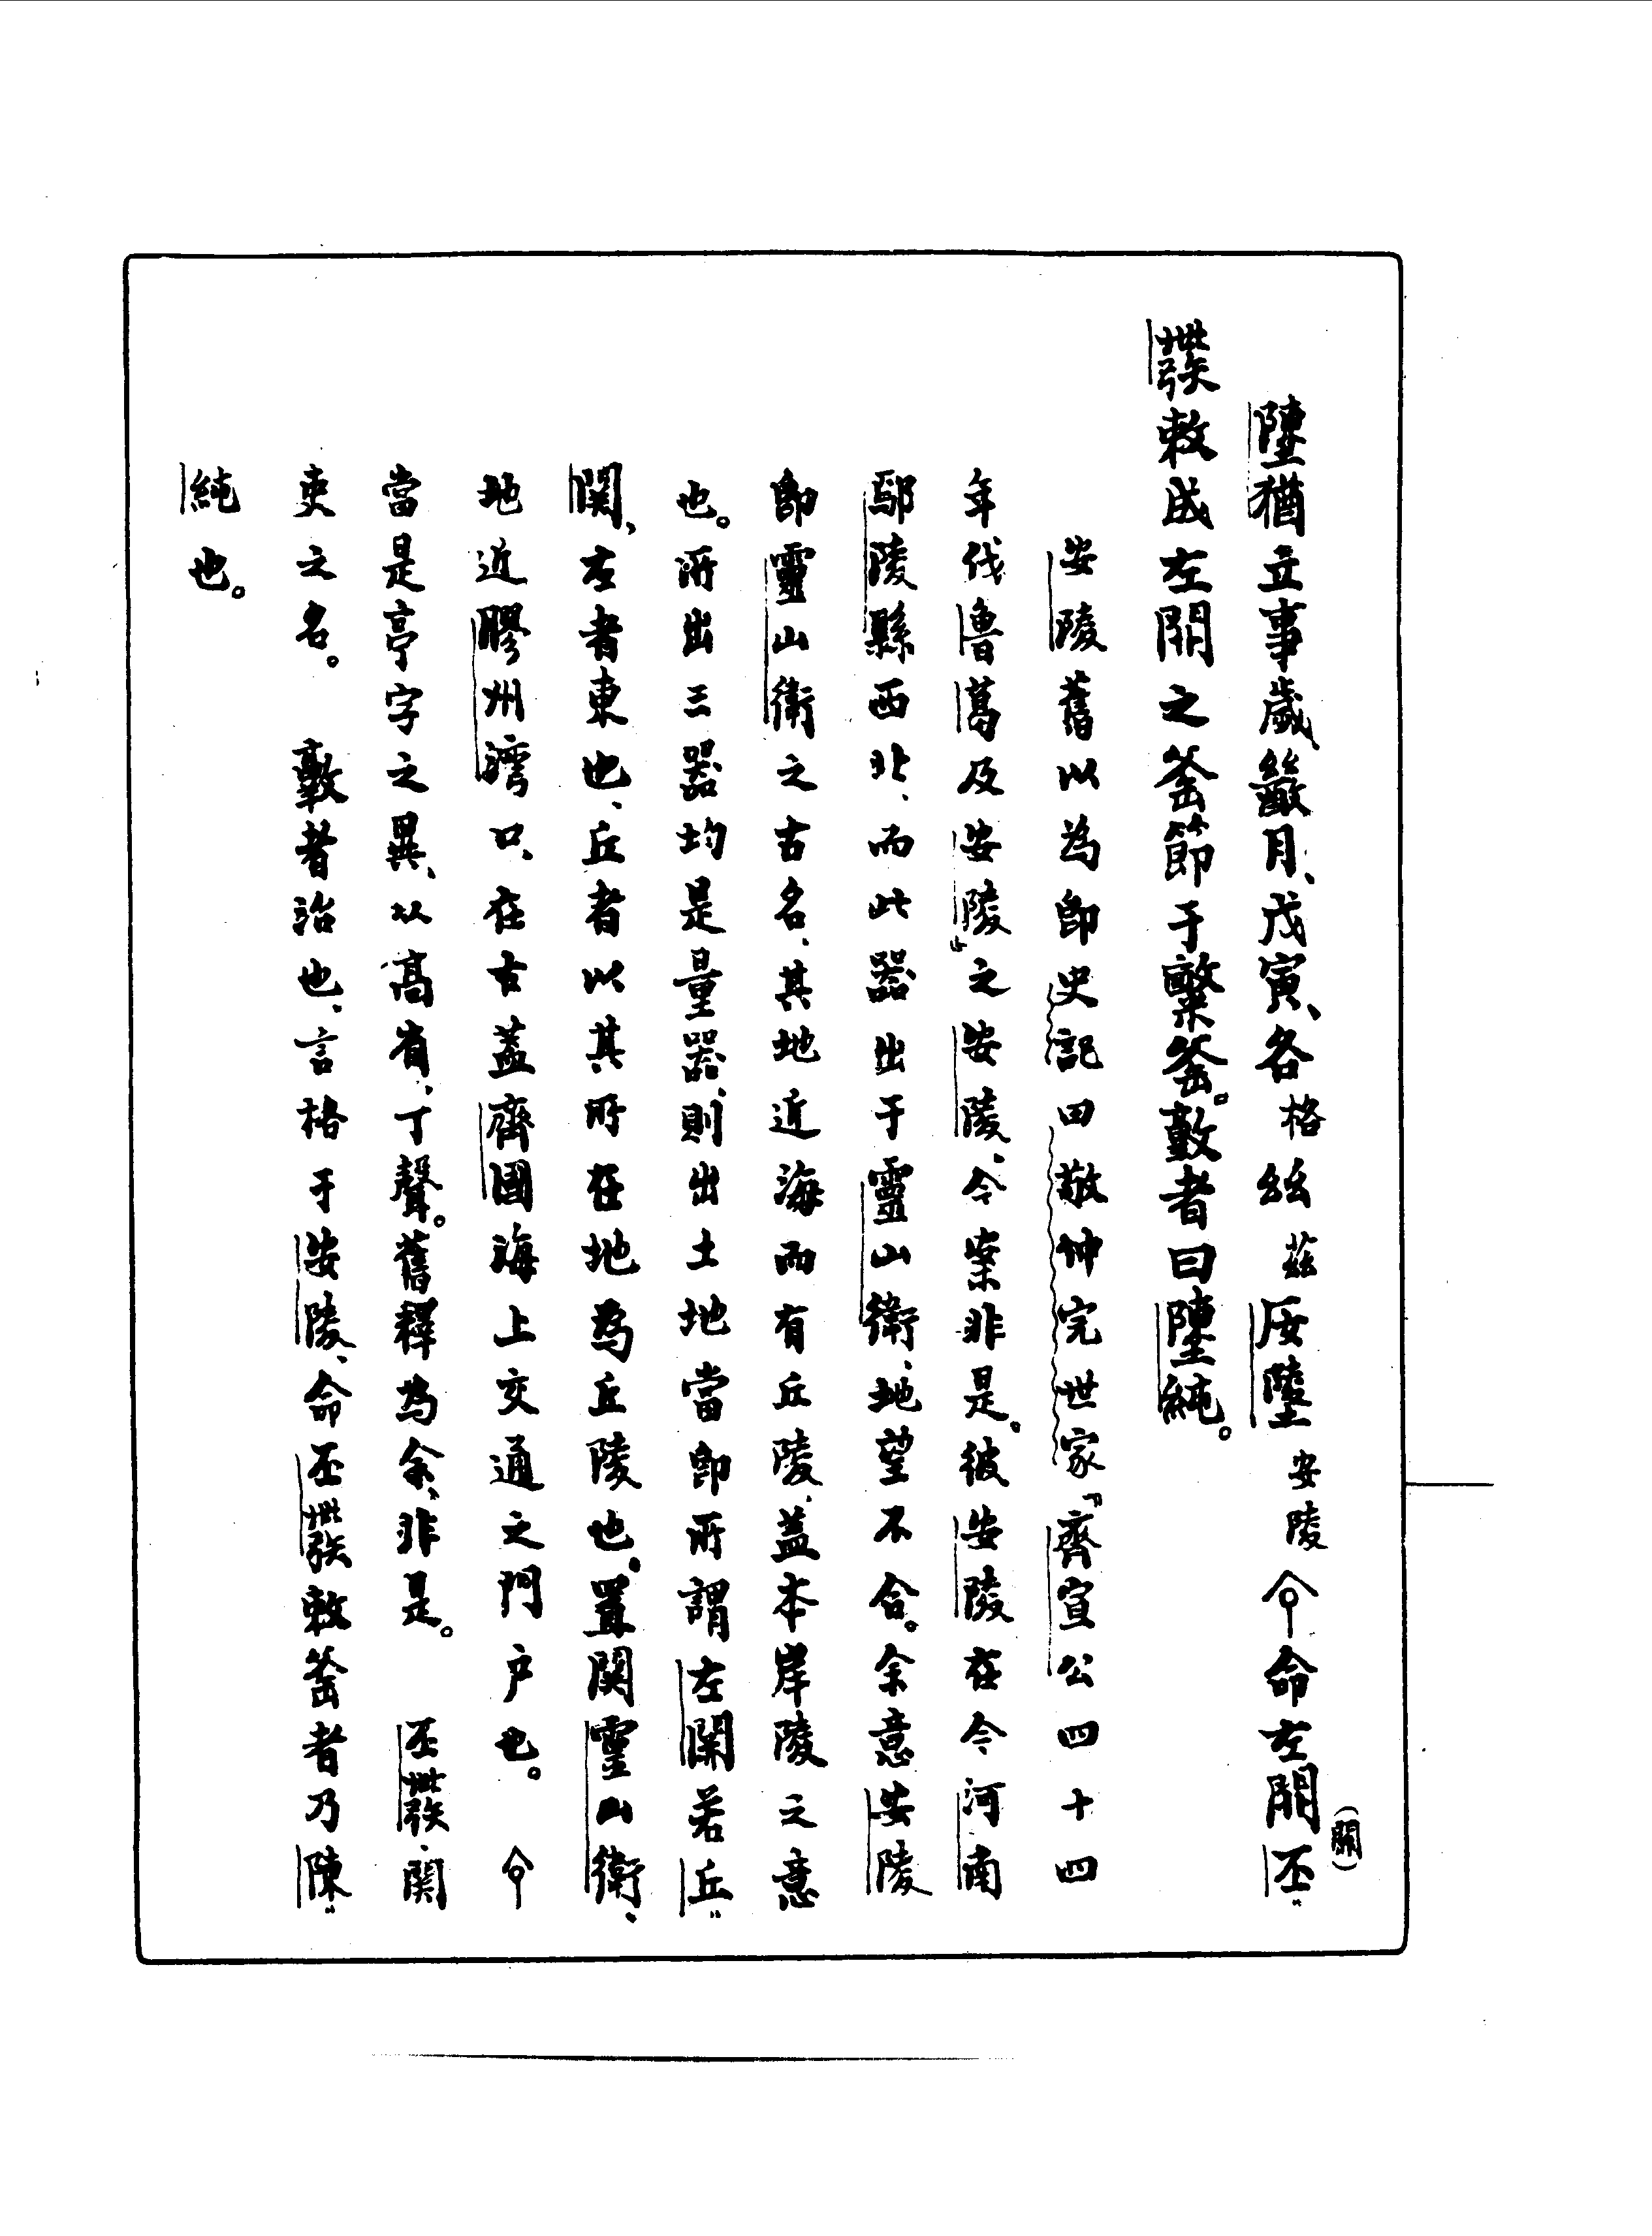 墬猶立事歲䉵月、戊寅、各格𢆶茲㡴墬安陵𠆢命左關丕
敕成左關之釜節于釜。敦者曰墬純。
安陵舊以為卽史記田敬仲完世家『齊宣公四十四
年伐魯葛及安陵』之安陵、今案非是。彼安陵在今河南
鄢陵縣西北、而此器出于靈山衛、地望不合。余意安陵
卽靈山衛之古名、其地近海而有丘陵、蓋本岸陵之意
也。所出三器均是量器、則出土地當卽所謂左關若丘
關、左者東也、丘者以其所在地為丘陵也。置關靈山衛、
地近膠州灣口、在古蓋齊國海上交通之門戶也。
當是亭字之異、从高省、丁聲。舊釋為余、非是。 丕、関
吏之名。 敦者治也、言格于安陵、命丕敕釜者乃陳
純也。